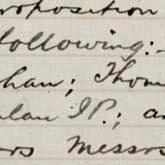 roposition
following:-
han; Thom
lan J.P.; a
ros Messrs